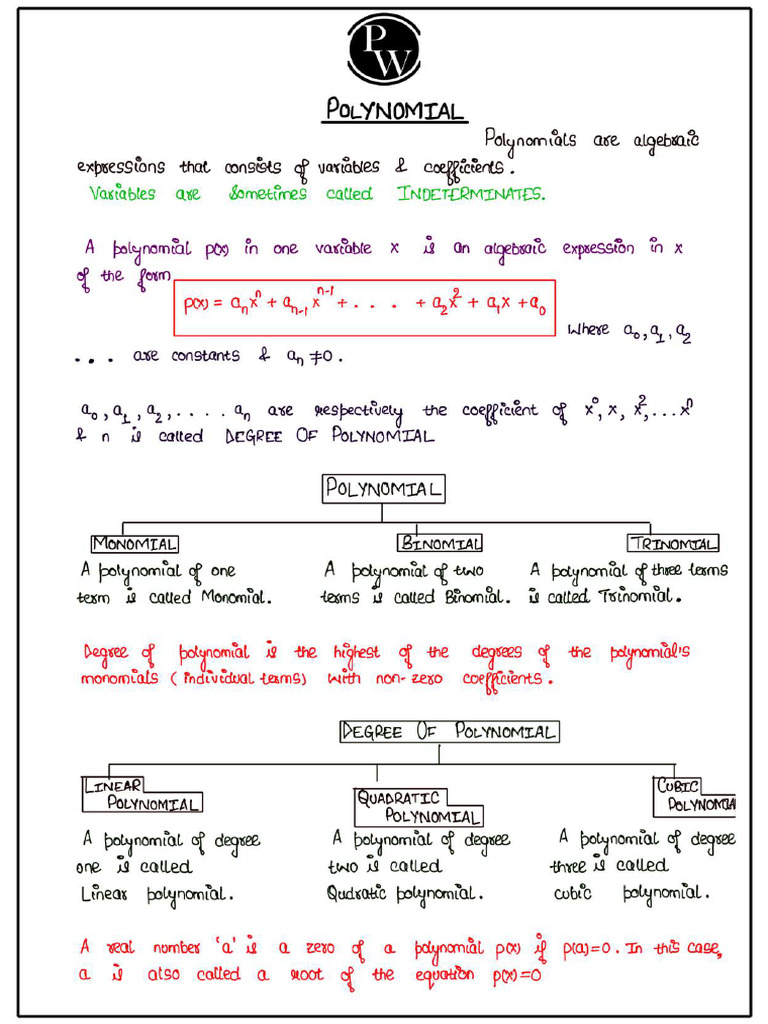 PW
POLYNOMIAL
Polynomials are algebraic
expressions that consists of variables & coefficients.
Variables are Sometimes called INDETERMINATES.
A polynomial p(x) in one variable x is an algebraic expression in x
of the form
p(x) = aₙxⁿ + aₙ₋₁xⁿ⁻¹ + . . . + a₂x² + a₁x + a₀
Where a₀, a₁, a₂
... are constants & aₙ ≠ 0.
a₀, a₁, a₂, .... aₙ are respectively the coefficient of x⁰, x, x², ... xⁿ
& n is called DEGREE OF POLYNOMIAL
POLYNOMIAL
MONOMIAL BINOMIAL TRINOMIAL
A polynomial of one A polynomial of two A polynomial of three terms
term is called Monomial. terms is called Binomial. is called Trinomial.
Degree of polynomial is the highest of the degrees of the polynomial's
monomials (individual terms) with non-zero coefficients.
DEGREE OF POLYNOMIAL
LINEAR POLYNOMIAL
QUADRATIC POLYNOMIAL
CUBIC POLYNOMIA
A polynomial of degree A polynomial of degree A polynomial of degree
one is called two is called three is called
Linear polynomial. Qudratic polynomial. cubic polynomial.
A real number 'a' is a zero of a polynomial p(x) if p(a)=0. In this case,
a is also called a root of the equation p(x)=0